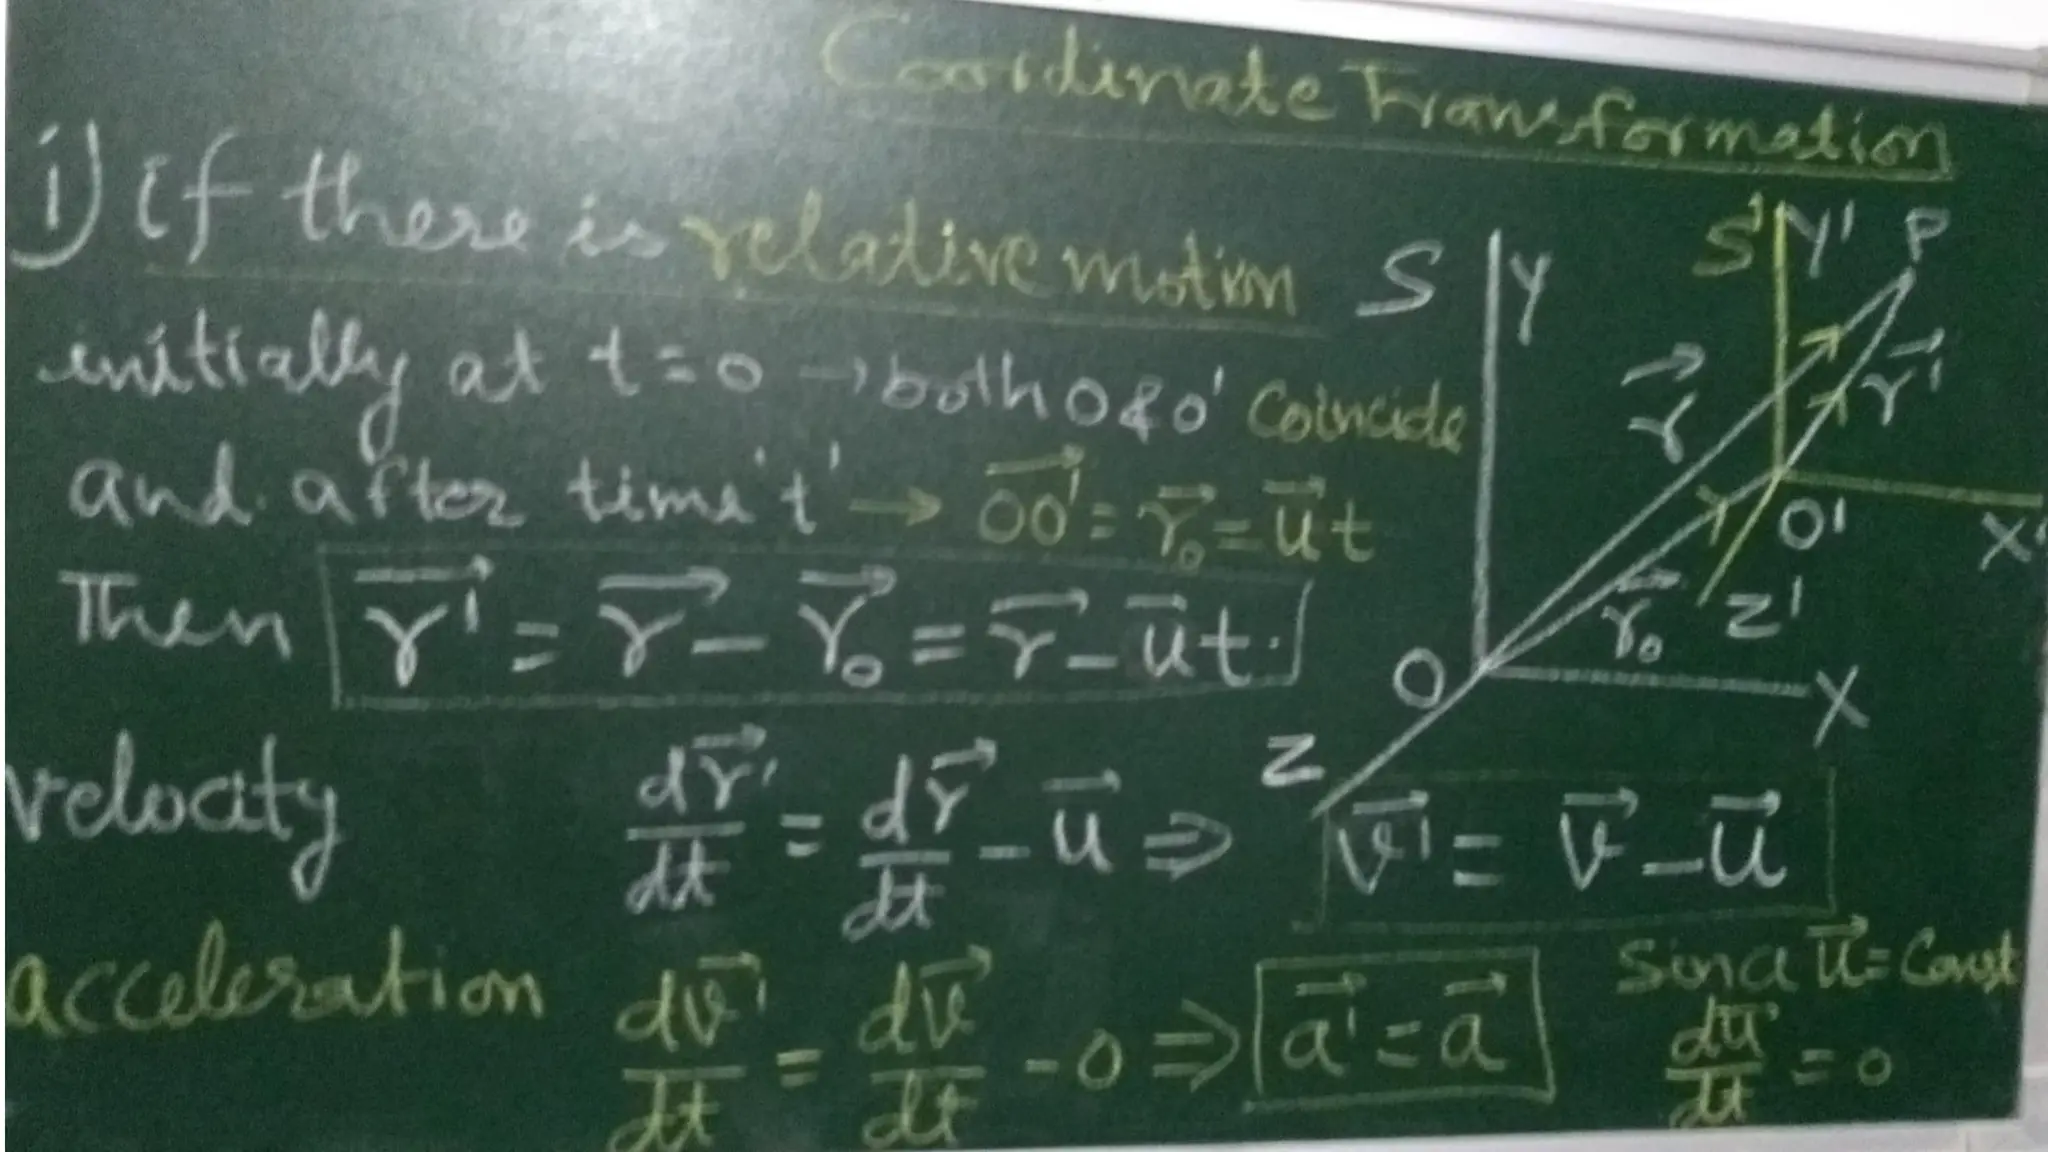 Coordinate Transformation
i) if there is relative motion
initially at t=0 → both O & O' Coincide
and after time 't' → \vec{OO'} = \vec{r₀} = \vec{u}t
Then \vec{r'} = \vec{r} - \vec{r₀} = \vec{r} - \vec{u}t.
velocity d\vec{r'}/dt = d\vec{r}/dt - \vec{u} ⇒ \vec{v'} = \vec{v} - \vec{u}
acceleration d\vec{v'}/dt = d\vec{v}/dt - 0 ⇒ \vec{a'} = \vec{a}
Since \vec{u} = Const
d\vec{u}/dt = 0
S Y
S' Y' P
\vec{r} \vec{r'}
O' X'
\vec{r₀} Z'
O X
Z